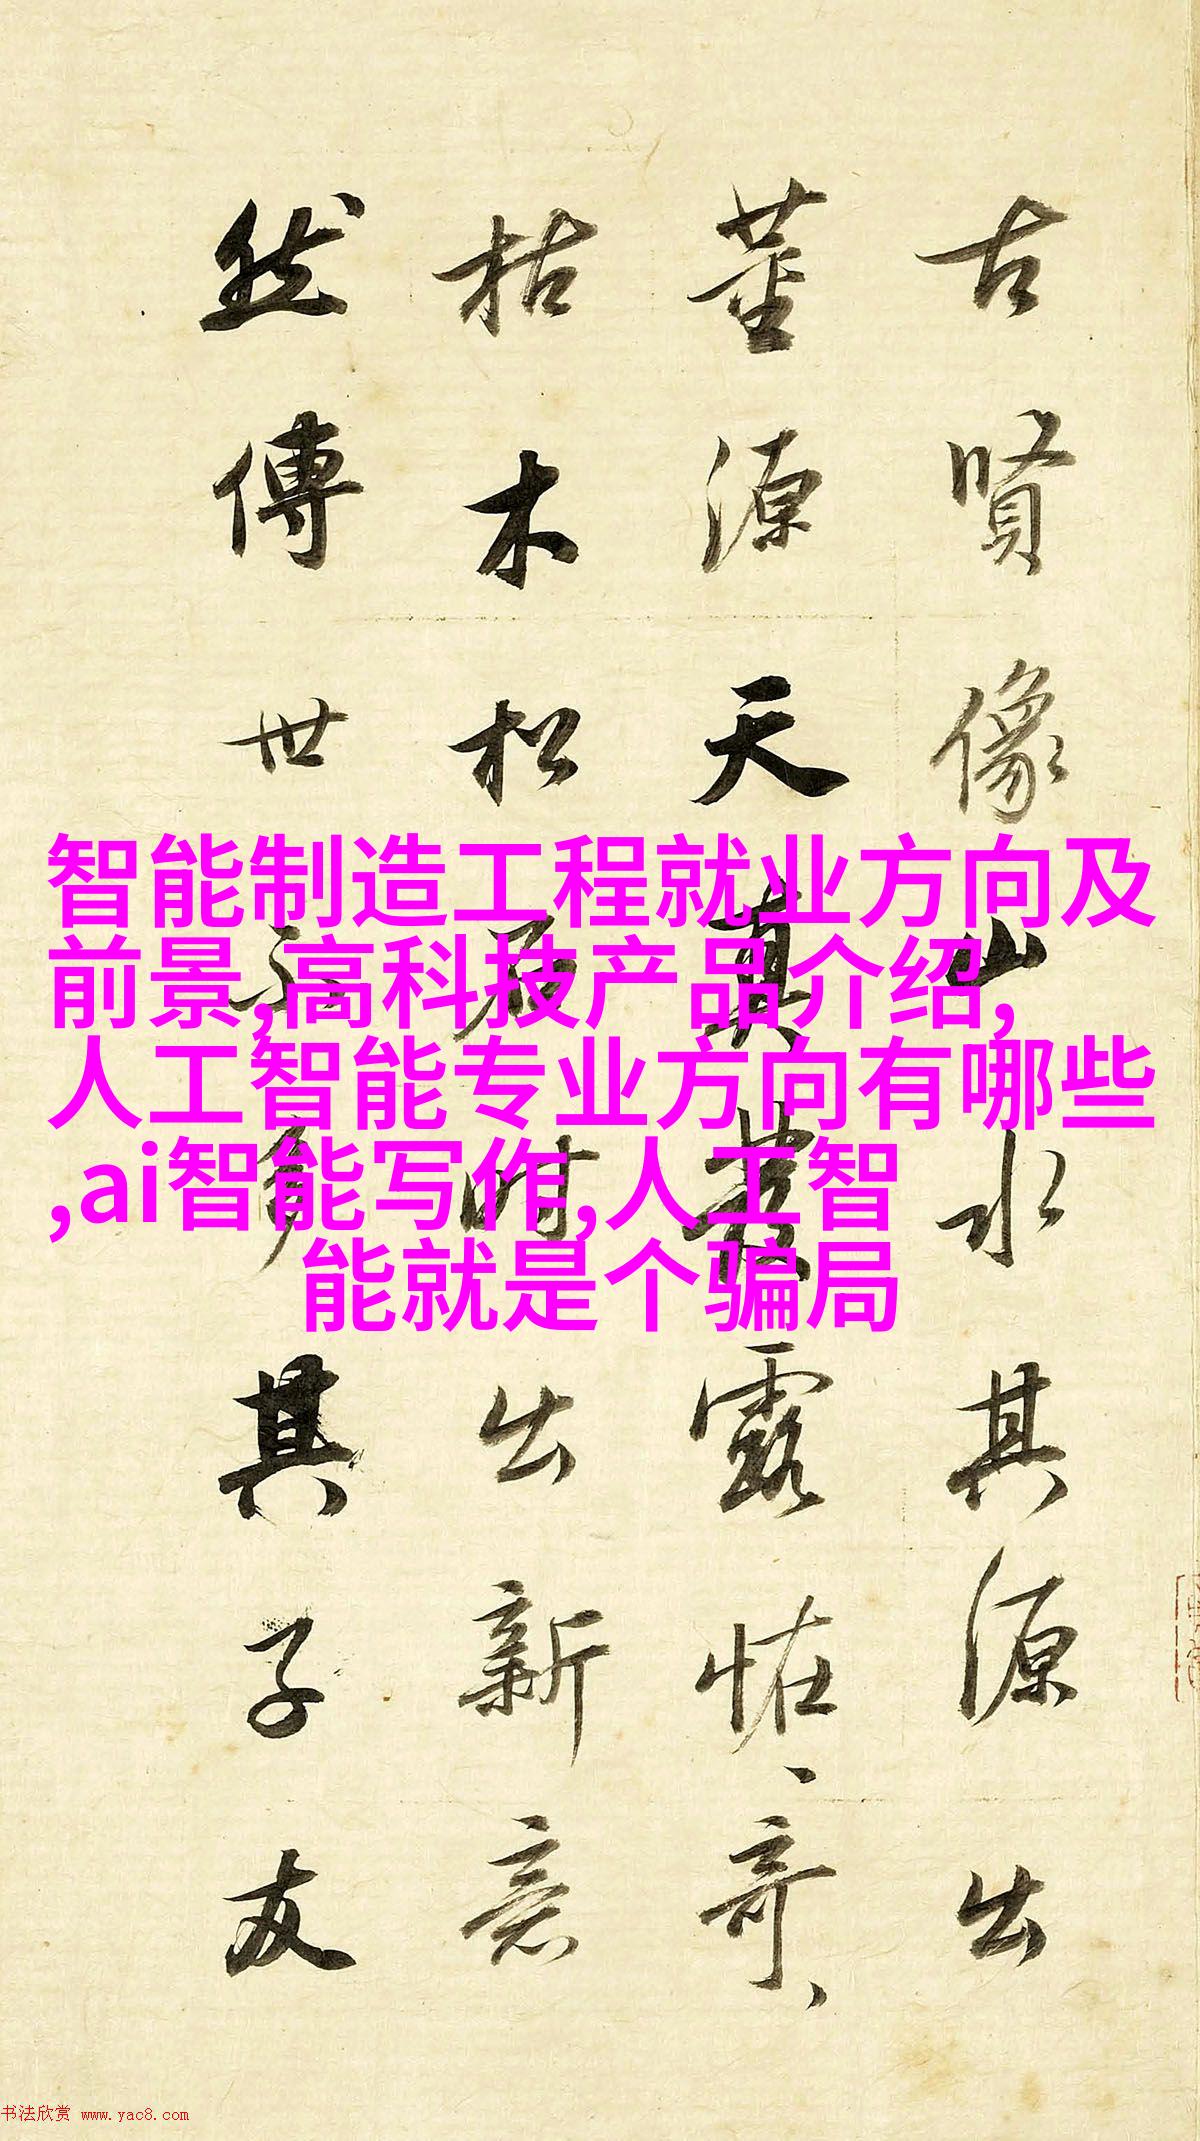 古賢像山水其源出
董源天真叢露怪奇
枯木松石時出新意
然傳世不多其子友
智能制造工程就业方向及
前景,高科技产品介绍,
人工智能专业方向有哪些
,ai智能写作,人工智
能就是个骗局
书法欣赏 www.yac8.com